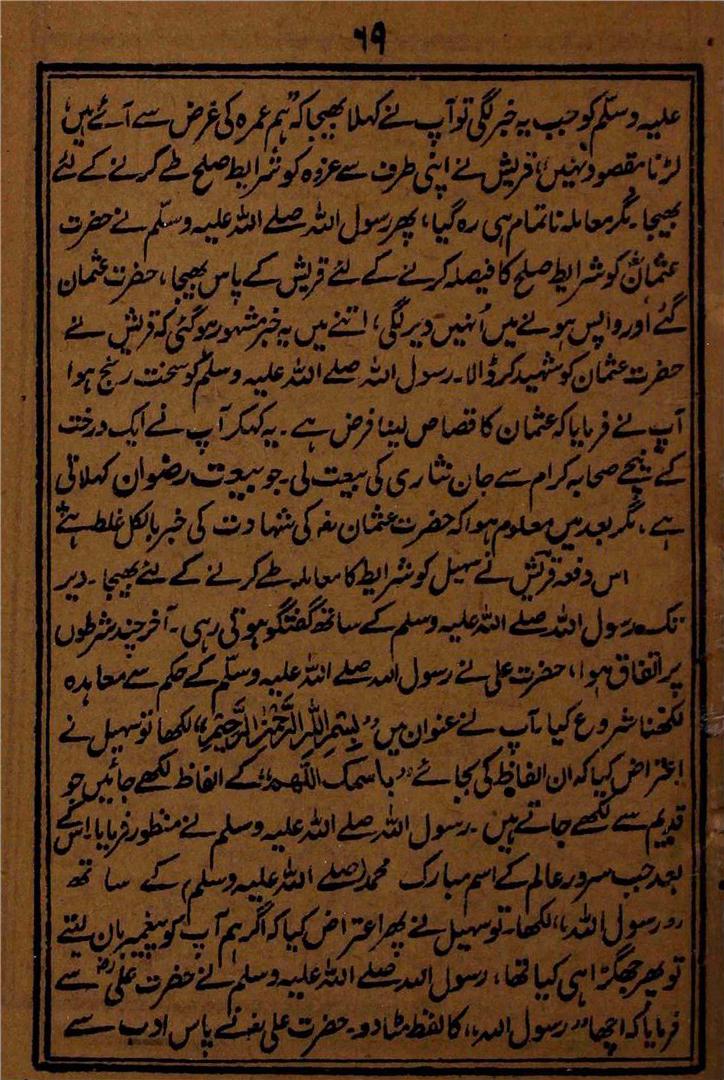 ۶۹
علیہ وسلّم کو جب یہ خبر لگی تو آپ نے کہلا بھیجا کہ "ہم عمرہ کی غرض سے آئے ہیں
لڑنا مقصود نہیں"، قریش نے اپنی طرف سے عروہ کو شرایط صلح طے کرنے کے لئے
بھیجا۔ مگر معاملہ ناتمام ہی رہ گیا، پھر رسول اللہ صلے اللہ علیہ وسلّم نے حضرت
عثمانؓ کو شرایط صلح کا فیصلہ کرنے کے لئے قریش کے پاس بھیجا، حضرت عثمان
گئے اور واپس ہونے میں اُنہیں دیر لگی، اتنے میں یہ خبر مشہور ہو گئی کہ قریش نے
حضرت عثمان کو شہید کر ڈالا۔ رسول اللہ صلے اللہ علیہ وسلّم کو سخت رنج ہوا
آپ نے فرمایا کہ عثمان کا قصاص لینا فرض ہے۔ یہ کہکر آپ نے ایک درخت
کے نیچے صحابہ کرام سے جان نثاری کی بیعت لی۔ جو بیعت رضوان کہلاتی
ہے، مگر بعد میں معلوم ہوا کہ حضرت عثمان رضہ کی شہادت کی خبر بالکل غلط ہے
اس دفعہ قریش نے سہیل کو شرایط کا معاملہ طے کرنے کے لئے بھیجا۔ دیر
تک رسول اللہ صلے اللہ علیہ وسلم کے ساتھ گفتگو ہوتی رہی۔ آخر چند شرطوں
پر اتفاق ہوا، حضرت علی نے رسول اللہ صلے اللہ علیہ وسلّم کے حکم سے معاہدہ
لکھنا شروع کیا۔ آپ نے عنوان میں "بِسْمِ اللّٰہِ الرَّحْمٰنِ الرَّحِیْمِ"، لکھا تو سہیل نے
اعتراض کیا کہ ان الفاظ کی بجائے "باسمک اللّٰھم" کے الفاظ لکھے جائیں جو
قدیم سے لکھے جاتے ہیں۔ رسول اللہ صلے اللہ علیہ وسلم نے منظور فرمایا۔ اس کے
بعد جب سرور عالم کے اسم مبارک محمد (صلے اللہ علیہ وسلم) کے ساتھ
"رسول اللہ"، لکھا۔ تو سہیل نے پھر اعتراض کیا کہ اگر ہم آپ کو پیغمبر مان لیتے
تو پھر جھگڑا ہی کیا تھا، رسول اللہ صلے اللہ علیہ وسلم نے حضرت علیؓ سے
فرمایا کہ اچھا "رسول اللہ"، کا لفظ مٹا دو۔ حضرت علی رضہ نے پاس ادب سے